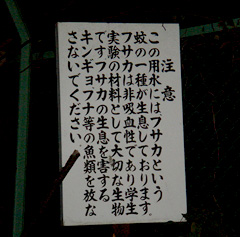 注意
この用水にはフサカという
蚊の一種が生息しております
フサカは非吸血性であり学生
実験の材料として大切な生物
ですフサカの生息を害する
キンギョフナ等の魚類を放な
さないでください